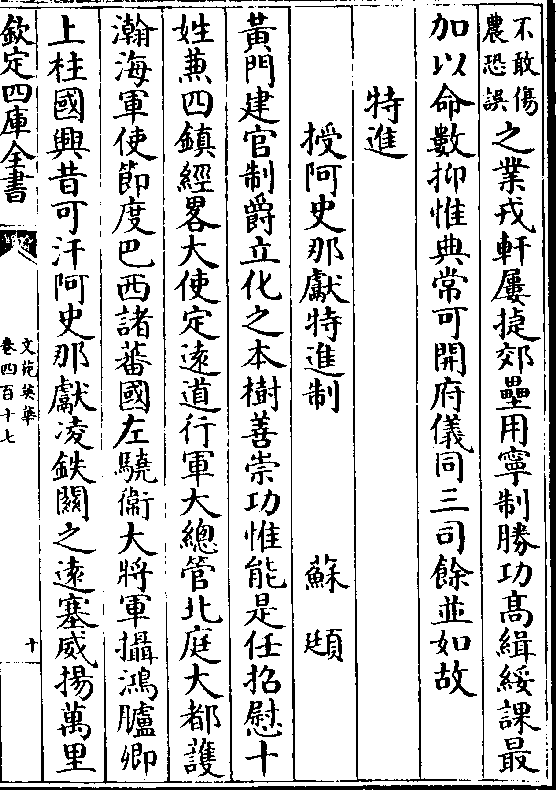 不敢傷
農恐誤
之業戎軒屢捷郊壘用寧制勝功髙緝綏課最
加以命數抑惟典常可開府儀同三司餘並如故
特進
授阿史那獻特進制　蘇頲
黃門建官制爵立化之本樹善崇功惟能是任招慰十
姓兼四鎮經畧大使定逺道行軍大總管北庭大都護
瀚海軍使節度巴西諸蕃國左驍衛大將軍攝鴻臚卿
上柱國興昔可汗阿史那獻凌鉄關之逺塞威揚萬里
欽定四庫全書
文苑英華
卷四百十七
十